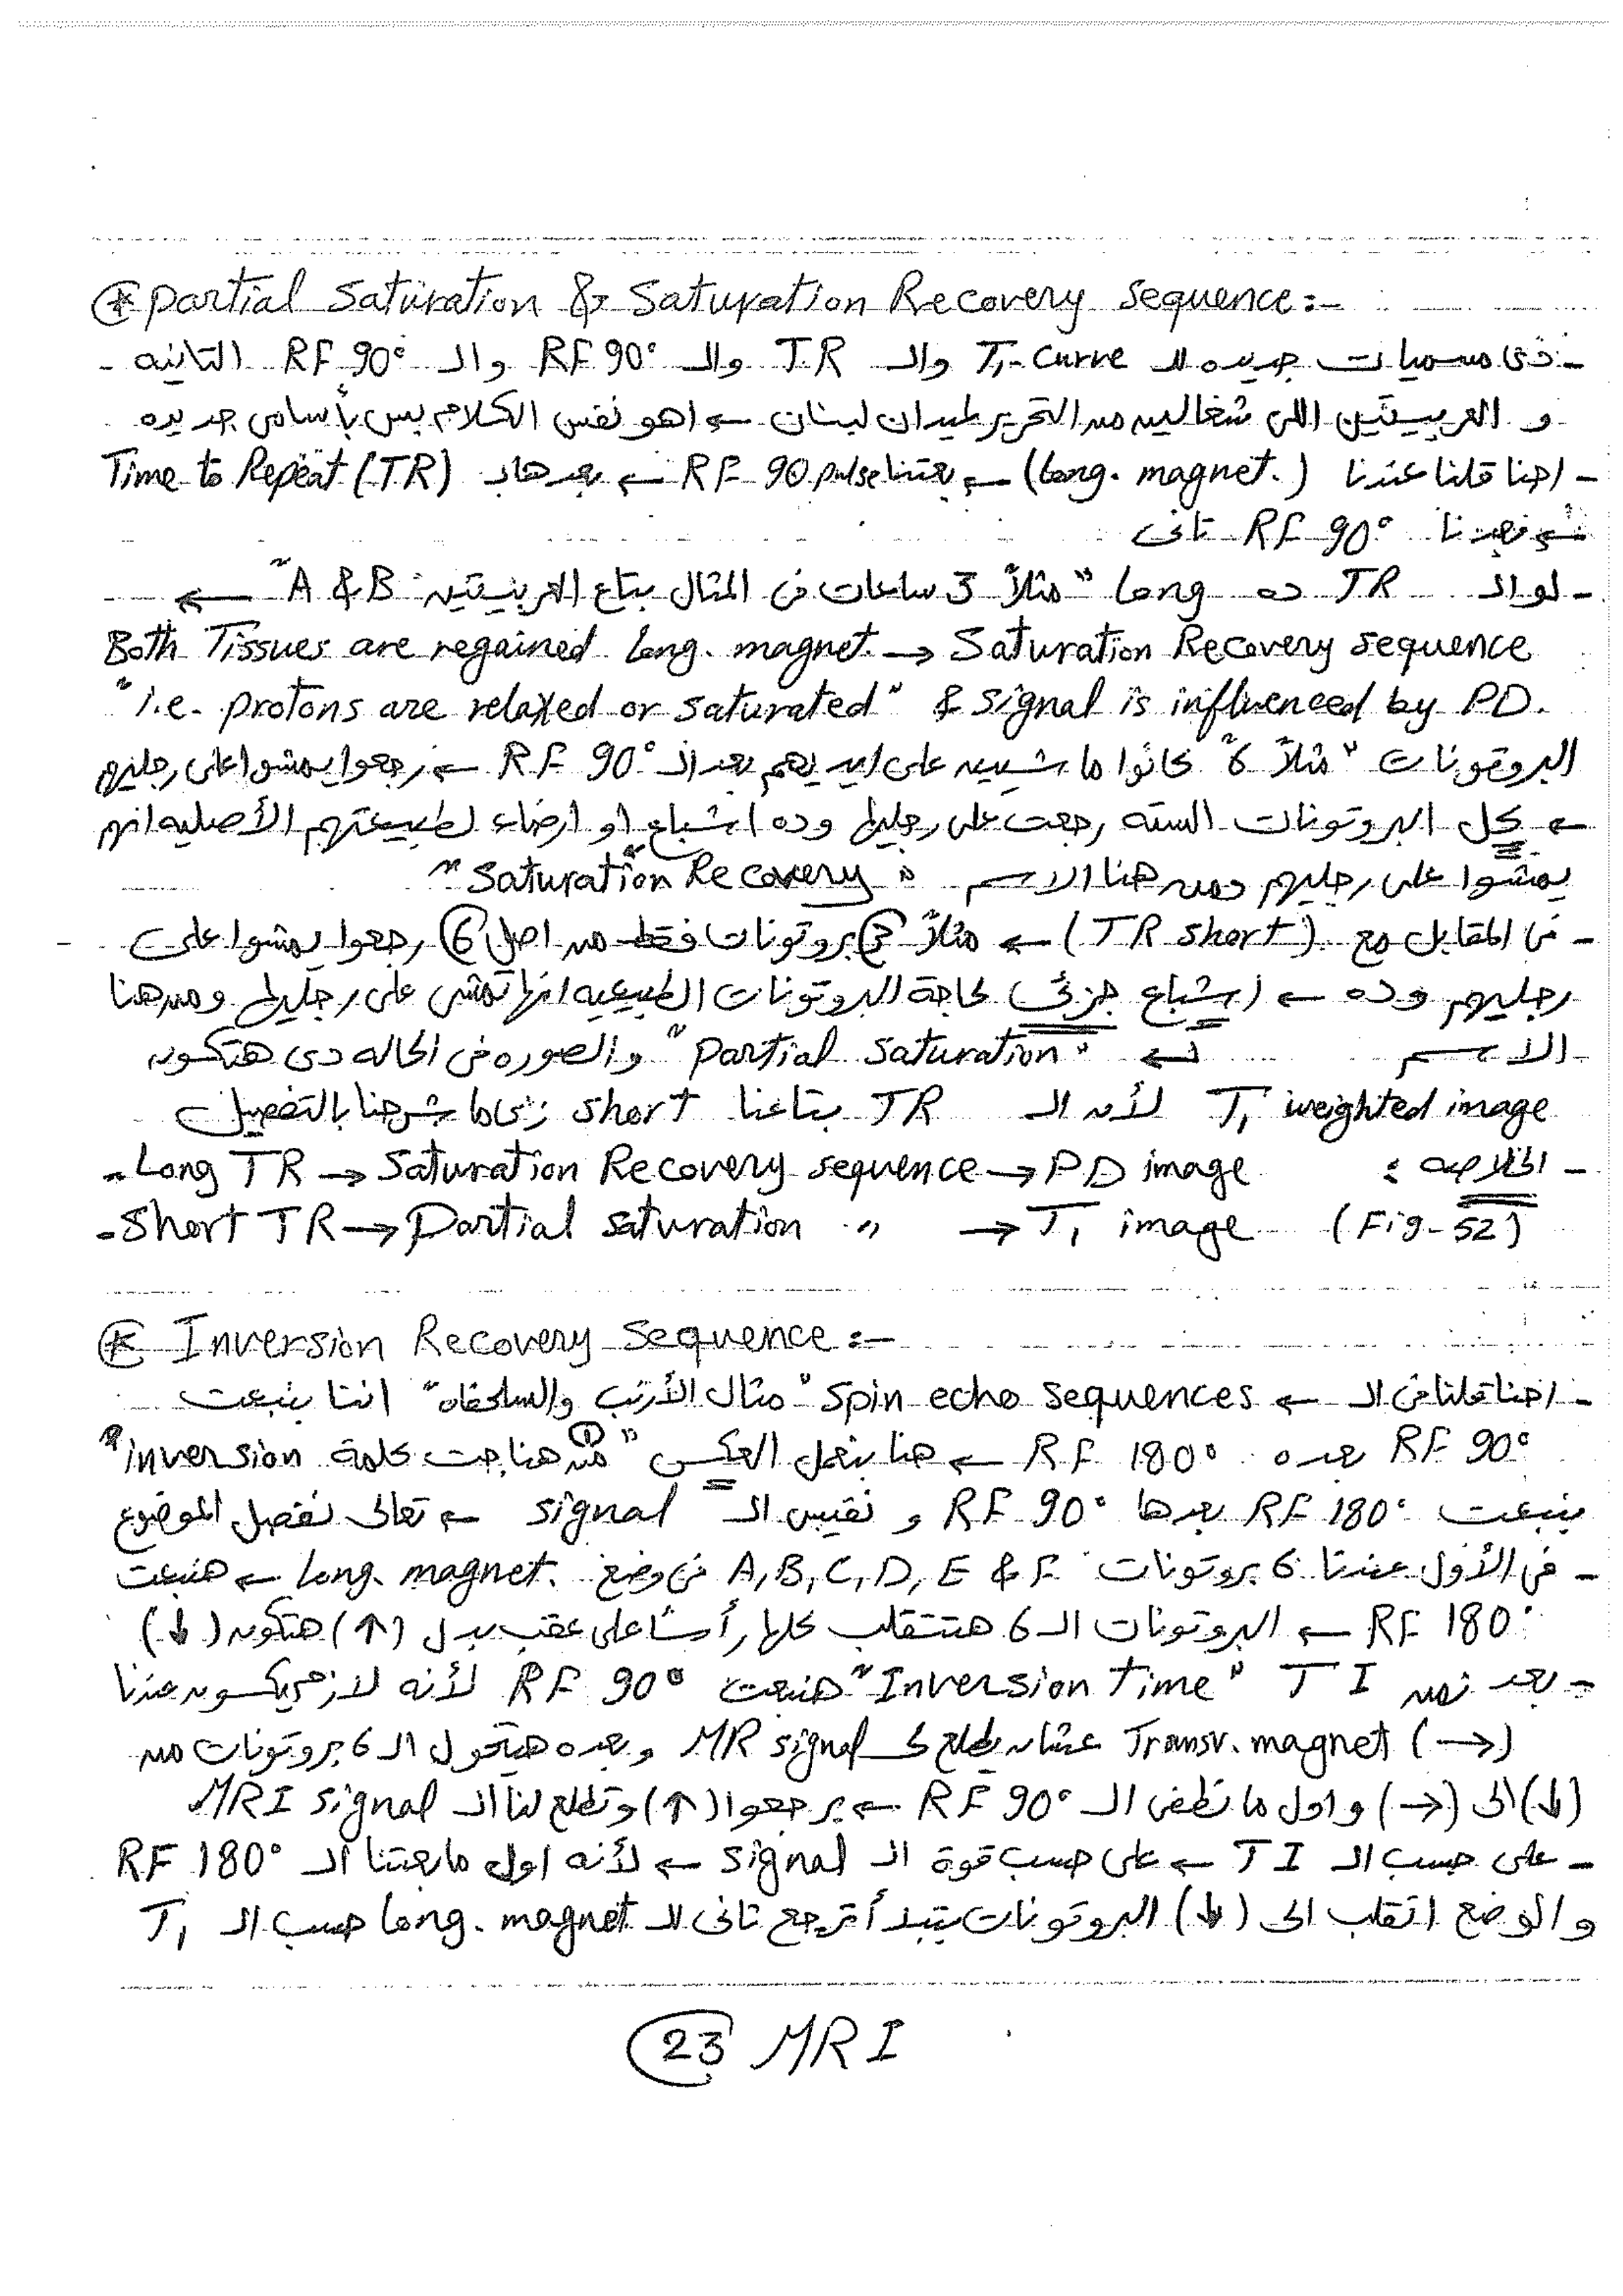 * Partial Saturation & Saturation Recovery Sequence:-
- دى مسميات جديده للـ T1-curve والـ TR والـ RF 90° والـ RF 90° التانيه
و العربيتين اللى شغالين من التحرير لميدان لبنان ← اهو نفس الكلام بس بأسامى جديده
- احنا قلنا عندنا (long. magnet.) ← بعتنا RF 90 pulse ← بعدها بـ Time to Repeat (TR)
← بعتنا RF 90° تانى
- لو الـ TR ده long "مثلاً 3 ساعات فى المثال بتاع العربيتين A & B" ←
Both Tissues are regained long. magnet. → Saturation Recovery sequence
"i.e. protons are relaxed or saturated" & signal is influenced by PD.
البروتونات "مثلاً 6" كانوا ماشيين على ايديهم بعد الـ RF 90° ← رجعوا يمشوا على رجليهم
← كل البروتونات السته رجعت على رجليها وده إشباع او ارضاء لطبيعتهم الأصليه انهم
يمشوا على رجليهم ومن هنا الاسم "Saturation Recovery"
- فى المقابل مع (TR short) ← مثلاً 3 بروتونات فقط من اصل 6 رجعوا يمشوا على
رجليهم وده ← إشباع جزئى لحاجة البروتونات الطبيعيه انها تمشى على رجليها ومن هنا
الاسم ← "Partial saturation" والصوره فى الحاله دى هتكون
T1 weighted image لأن الـ TR بتاعنا short زى ما شرحنا بالتفصيل
- الخلاصه :
- Long TR → Saturation Recovery sequence → PD image
- Short TR → Partial saturation " → T1 image (Fig-52)
* Inversion Recovery Sequence:-
- احنا قلنا فى الـ ← spin echo sequences "مثال الأرنب والسلحفاه" اننا بنبعت
RF 90° بعده RF 180° ← هنا بنعمل العكس "من هنا جت كلمة inversion"
بنبعت RF 180° بعدها RF 90° و نقيس الـ signal ← تعالى نفصل الموضوع
- فى الأول عندنا 6 بروتونات A, B, C, D, E & F فى وضع long. magnet. ← هنبعت
RF 180° ← البروتونات الـ 6 هتتقلب كلها رأساً على عقب بدل (↑) هتكون (↓)
- بعد زمن TI "Inversion Time" هنبعت RF 90° لأنه لازم يكون عندنا
(→) Transv. magnet عشان يطلع لى MR signal وبعده هيتحول الـ 6 بروتونات من
(↓) الى (→) و اول ما نطفى الـ RF 90° ← يرجعوا (↑) و تطلع لنا الـ MRI signal
- على حسب الـ TI ← على حسب قوة الـ signal ← لأنه اول ما بعتنا الـ RF 180°
و الوضع اتقلب الى (↓) البروتونات بتبدأ ترجع تانى للـ long. magnet حسب الـ T1
23 MRI